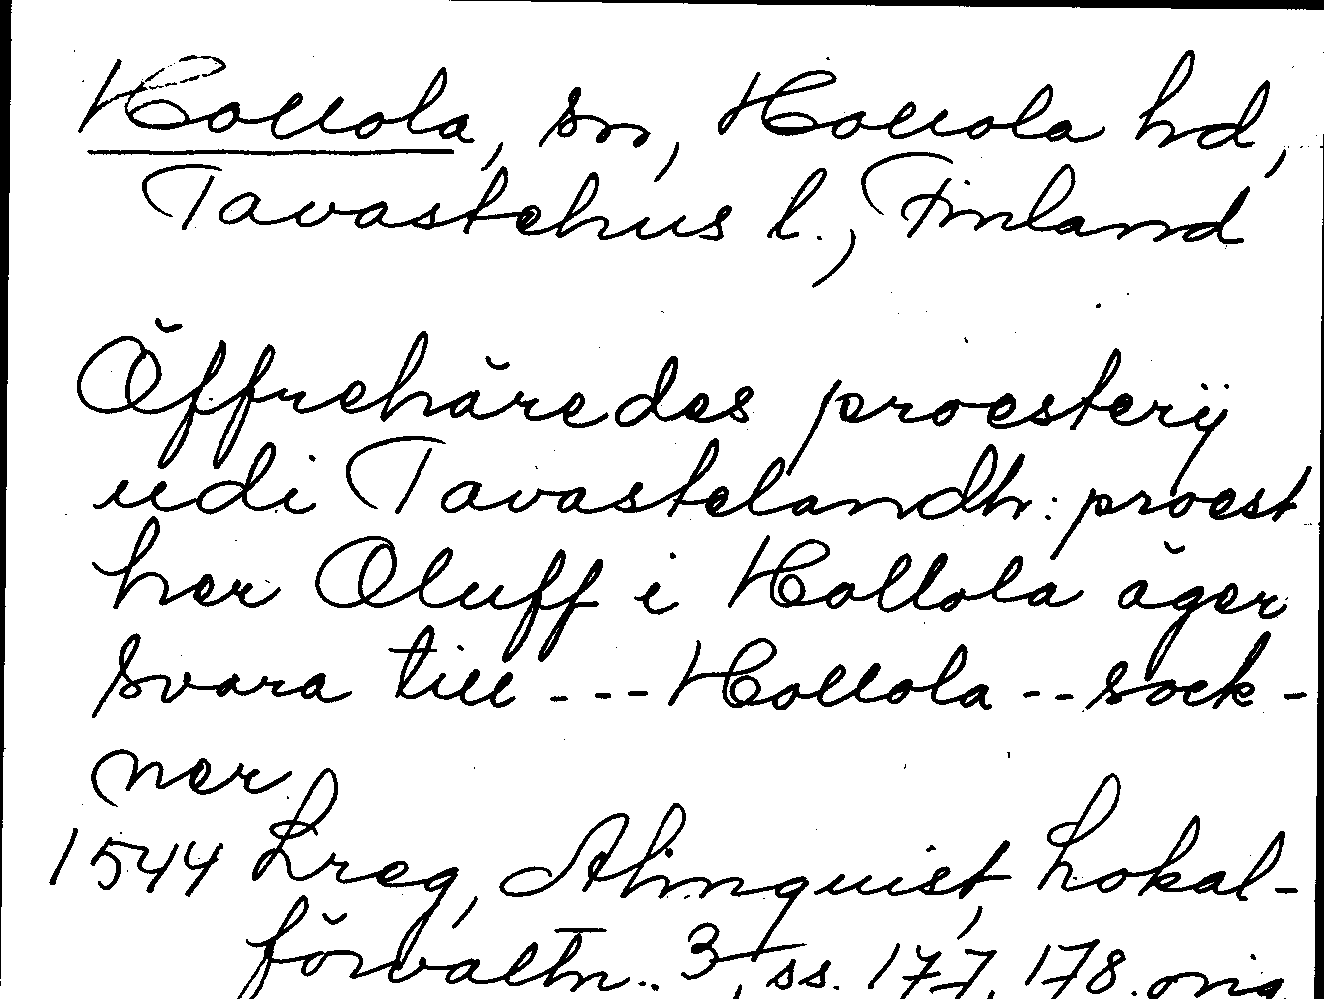 Hollola, sn, Hollola hd,
Tavastehus l., Finland
Öffrehäredes proesterij
udi Tavastelandh: proest
her Oluff i Hollola äger
svara till --- Hollola -- sock-
ner
1544 Lreg, Almquist, Lokal-
förvaltn.. 3, ss. 177, 178. orig